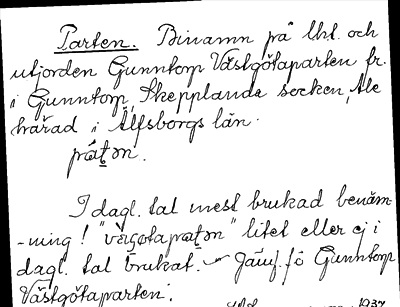 Parten. Binamn på lht. och
utjorden Gunntorp Västgötaparten fr.
i Gunntorp, Skepplanda socken, Ale
härad i Älfsborgs län.
pat̲ən.
I dagl. tal mest brukad benäm-
-ning! "väsgotapat̲ən" litet eller ej i
dagl. tal brukat. Jämf. fö Gunntorp
Västgötaparten.
1937